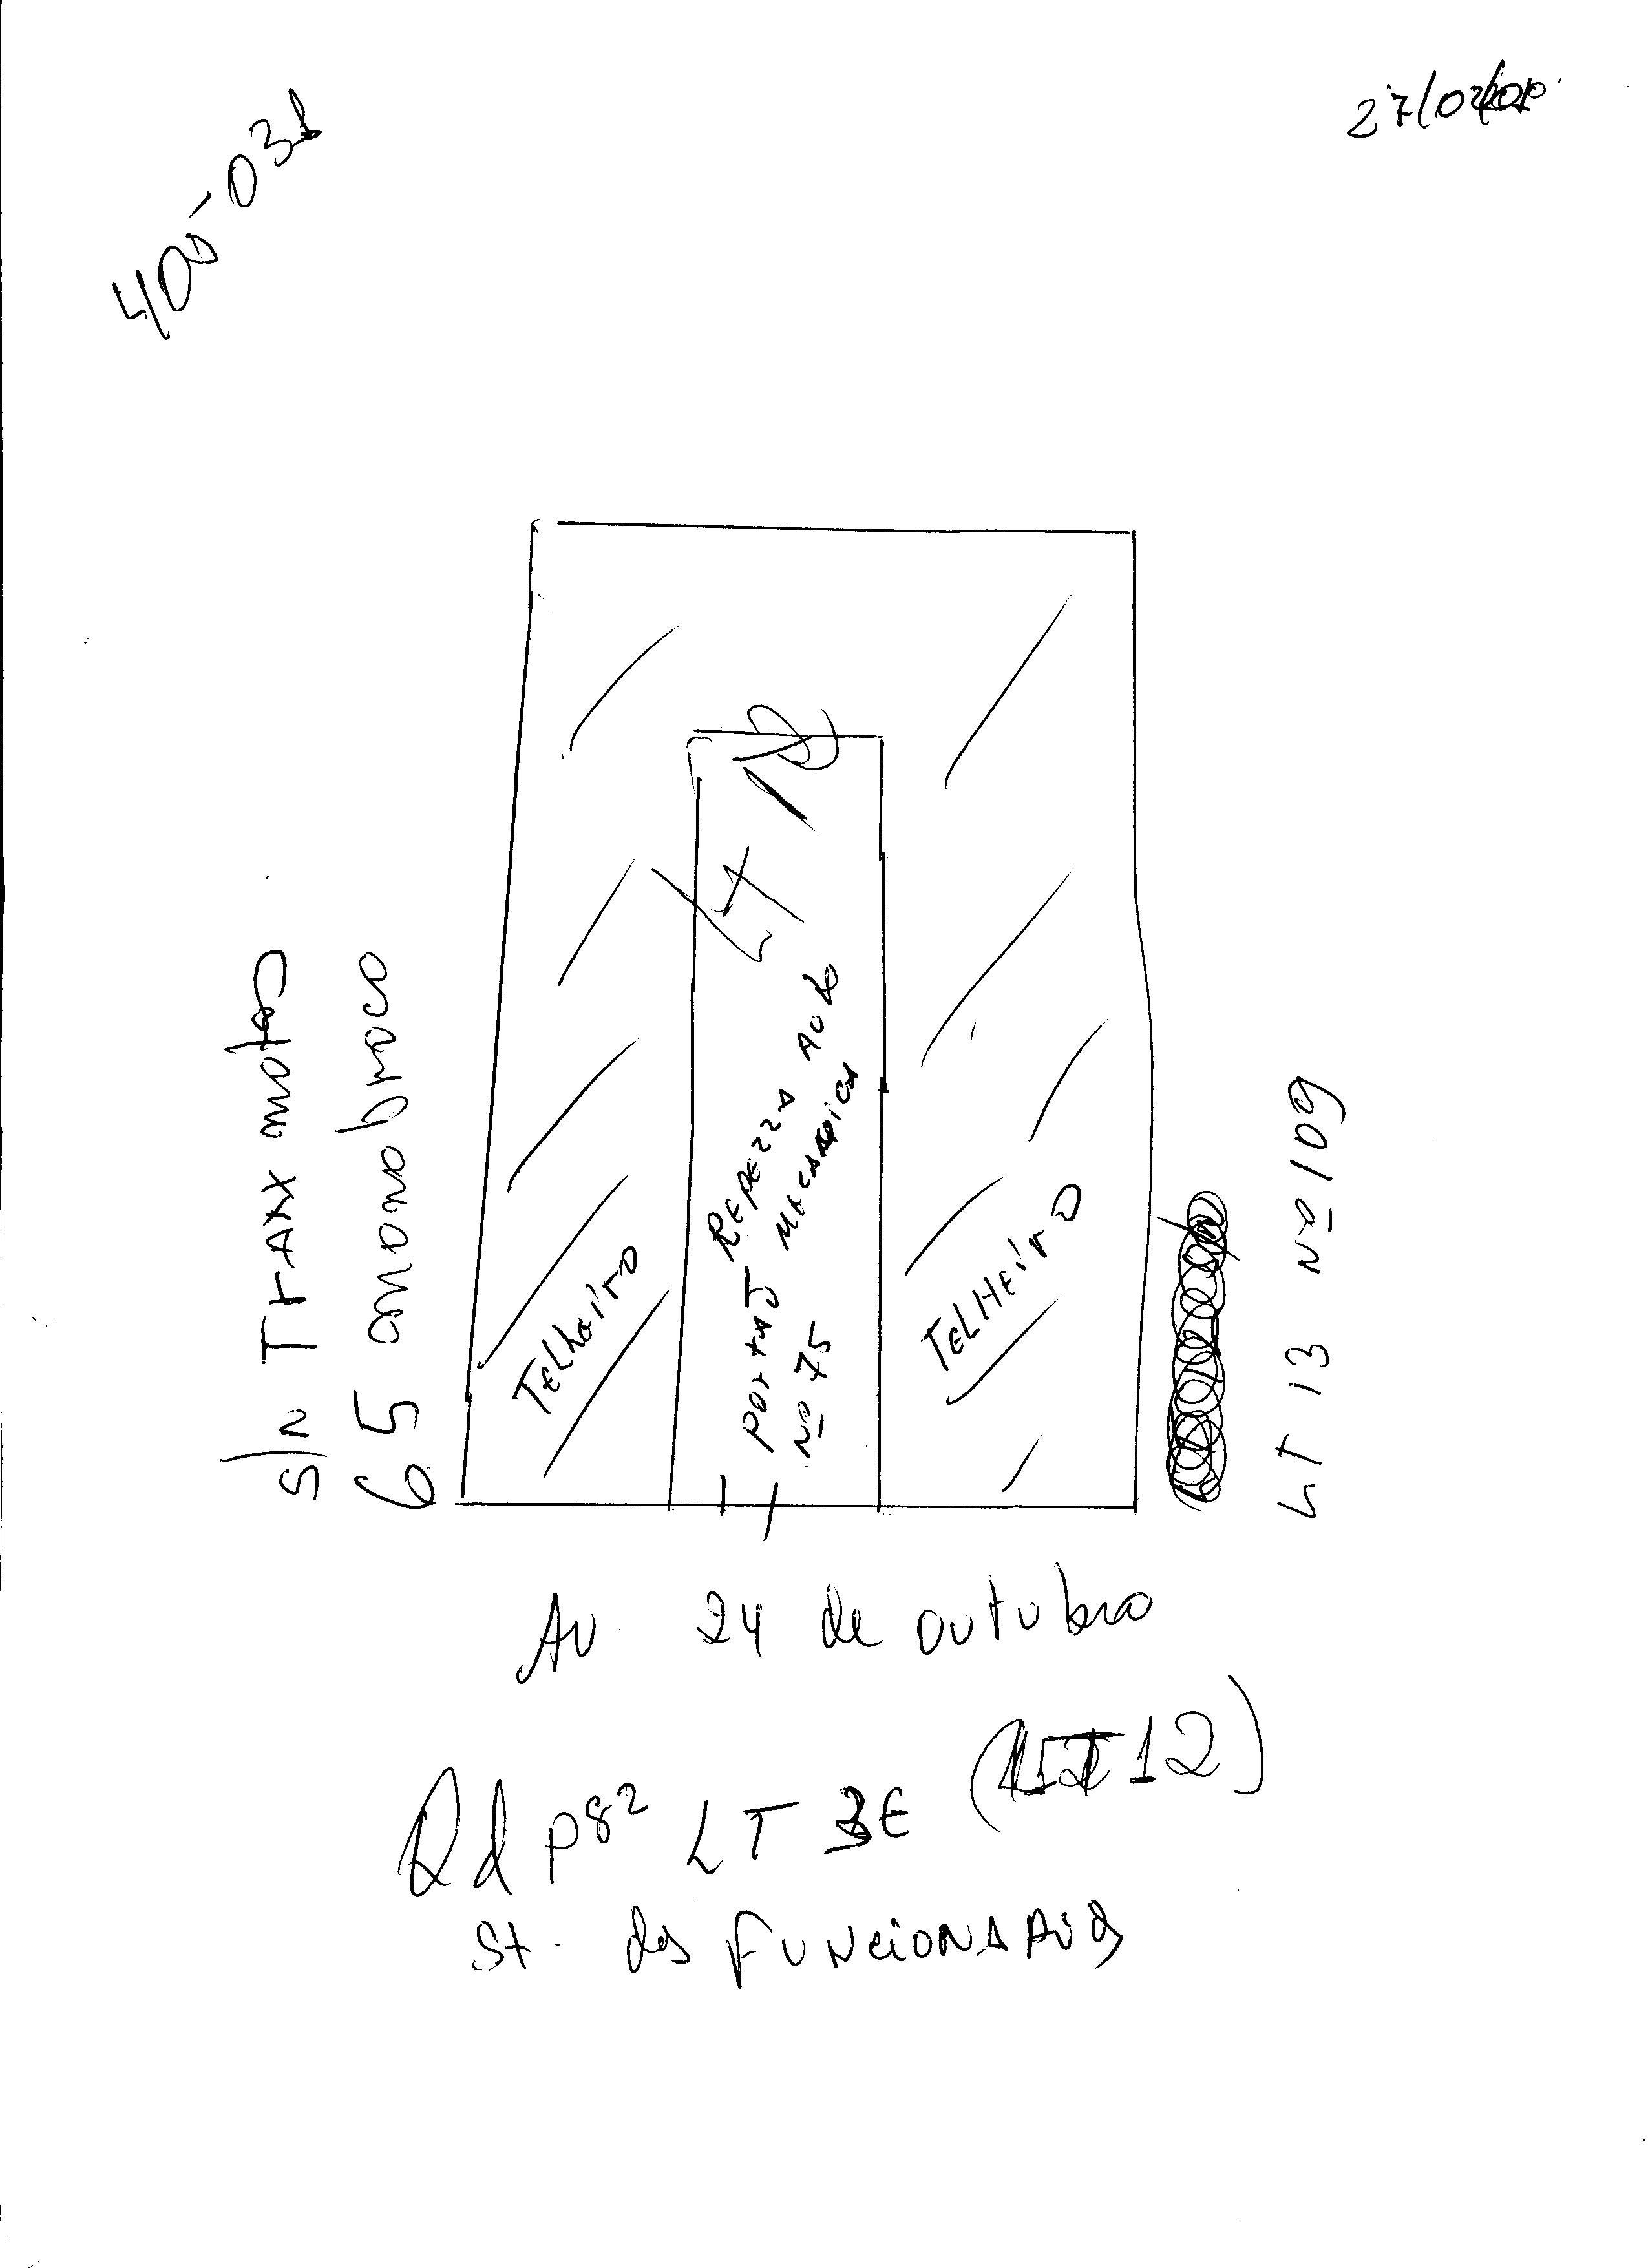 27/02/2010
400-031
S/N TrAXX motos
65 monobroco
LT 12
Telheiro
portaõ
Nº 75
REPEZZA AUTO
MECANICA
TELHEirO
LT 13 Nº 109
AV 24 de outubro
Qd P82 LT 3E (LT 12)
St. dos FUNCIONARIOS